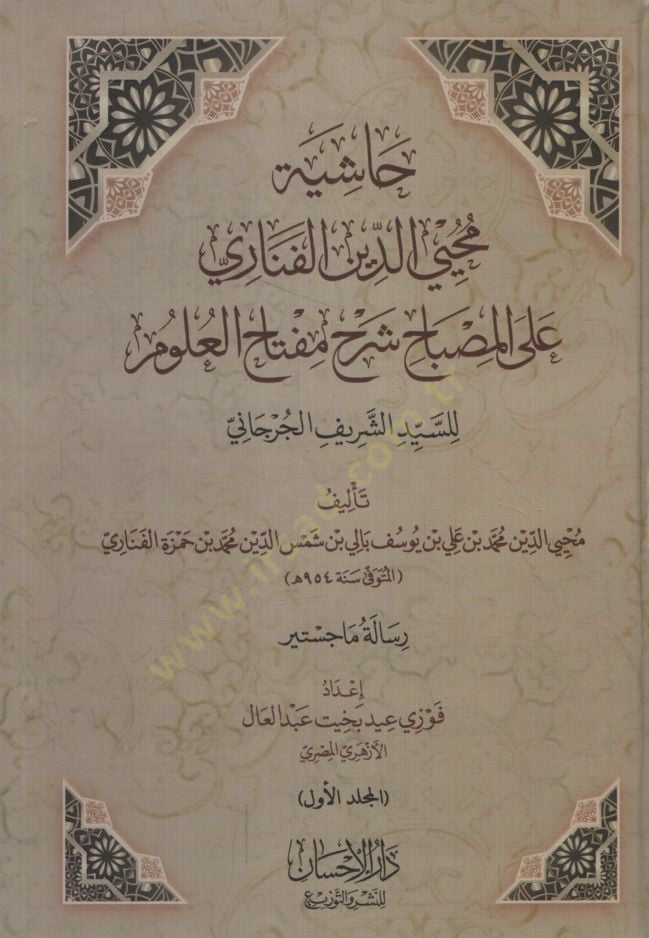 حَاشِيَة
مُحْيِي الدِّين الفَنَارِيّ
عَلَى المِصْبَاحِ شَرْحِ مِفْتَاحِ العُلُومِ
لِلسَّيِّدِ الشَّرِيفِ الجُرْجَانِيّ
تَأْلِيفُ
مُحْيِي الدِّيْن مُحَمَّد بْن عَلِي بْن يُوسُف بَالِي بْن شَمْسِ الدِّيْنِ مُحَمَّد بْن حَمْزَة الفَنَارِيّ
(المُتَوَفَّى سَنَة ٩٥٤هـ)
رِسَالَةُ مَاجِسْتِير
إِعْدَادُ
فَوْزِي عِيد بَخِيت عَبْد العَال
الأَزْهَرِيّ المِصْرِيّ
(المجلد الأول)
دَارُ الإِحْسَان
لِلنَّشْرِ وَالتَّوْزِيعِ
www.irsad.com.tr